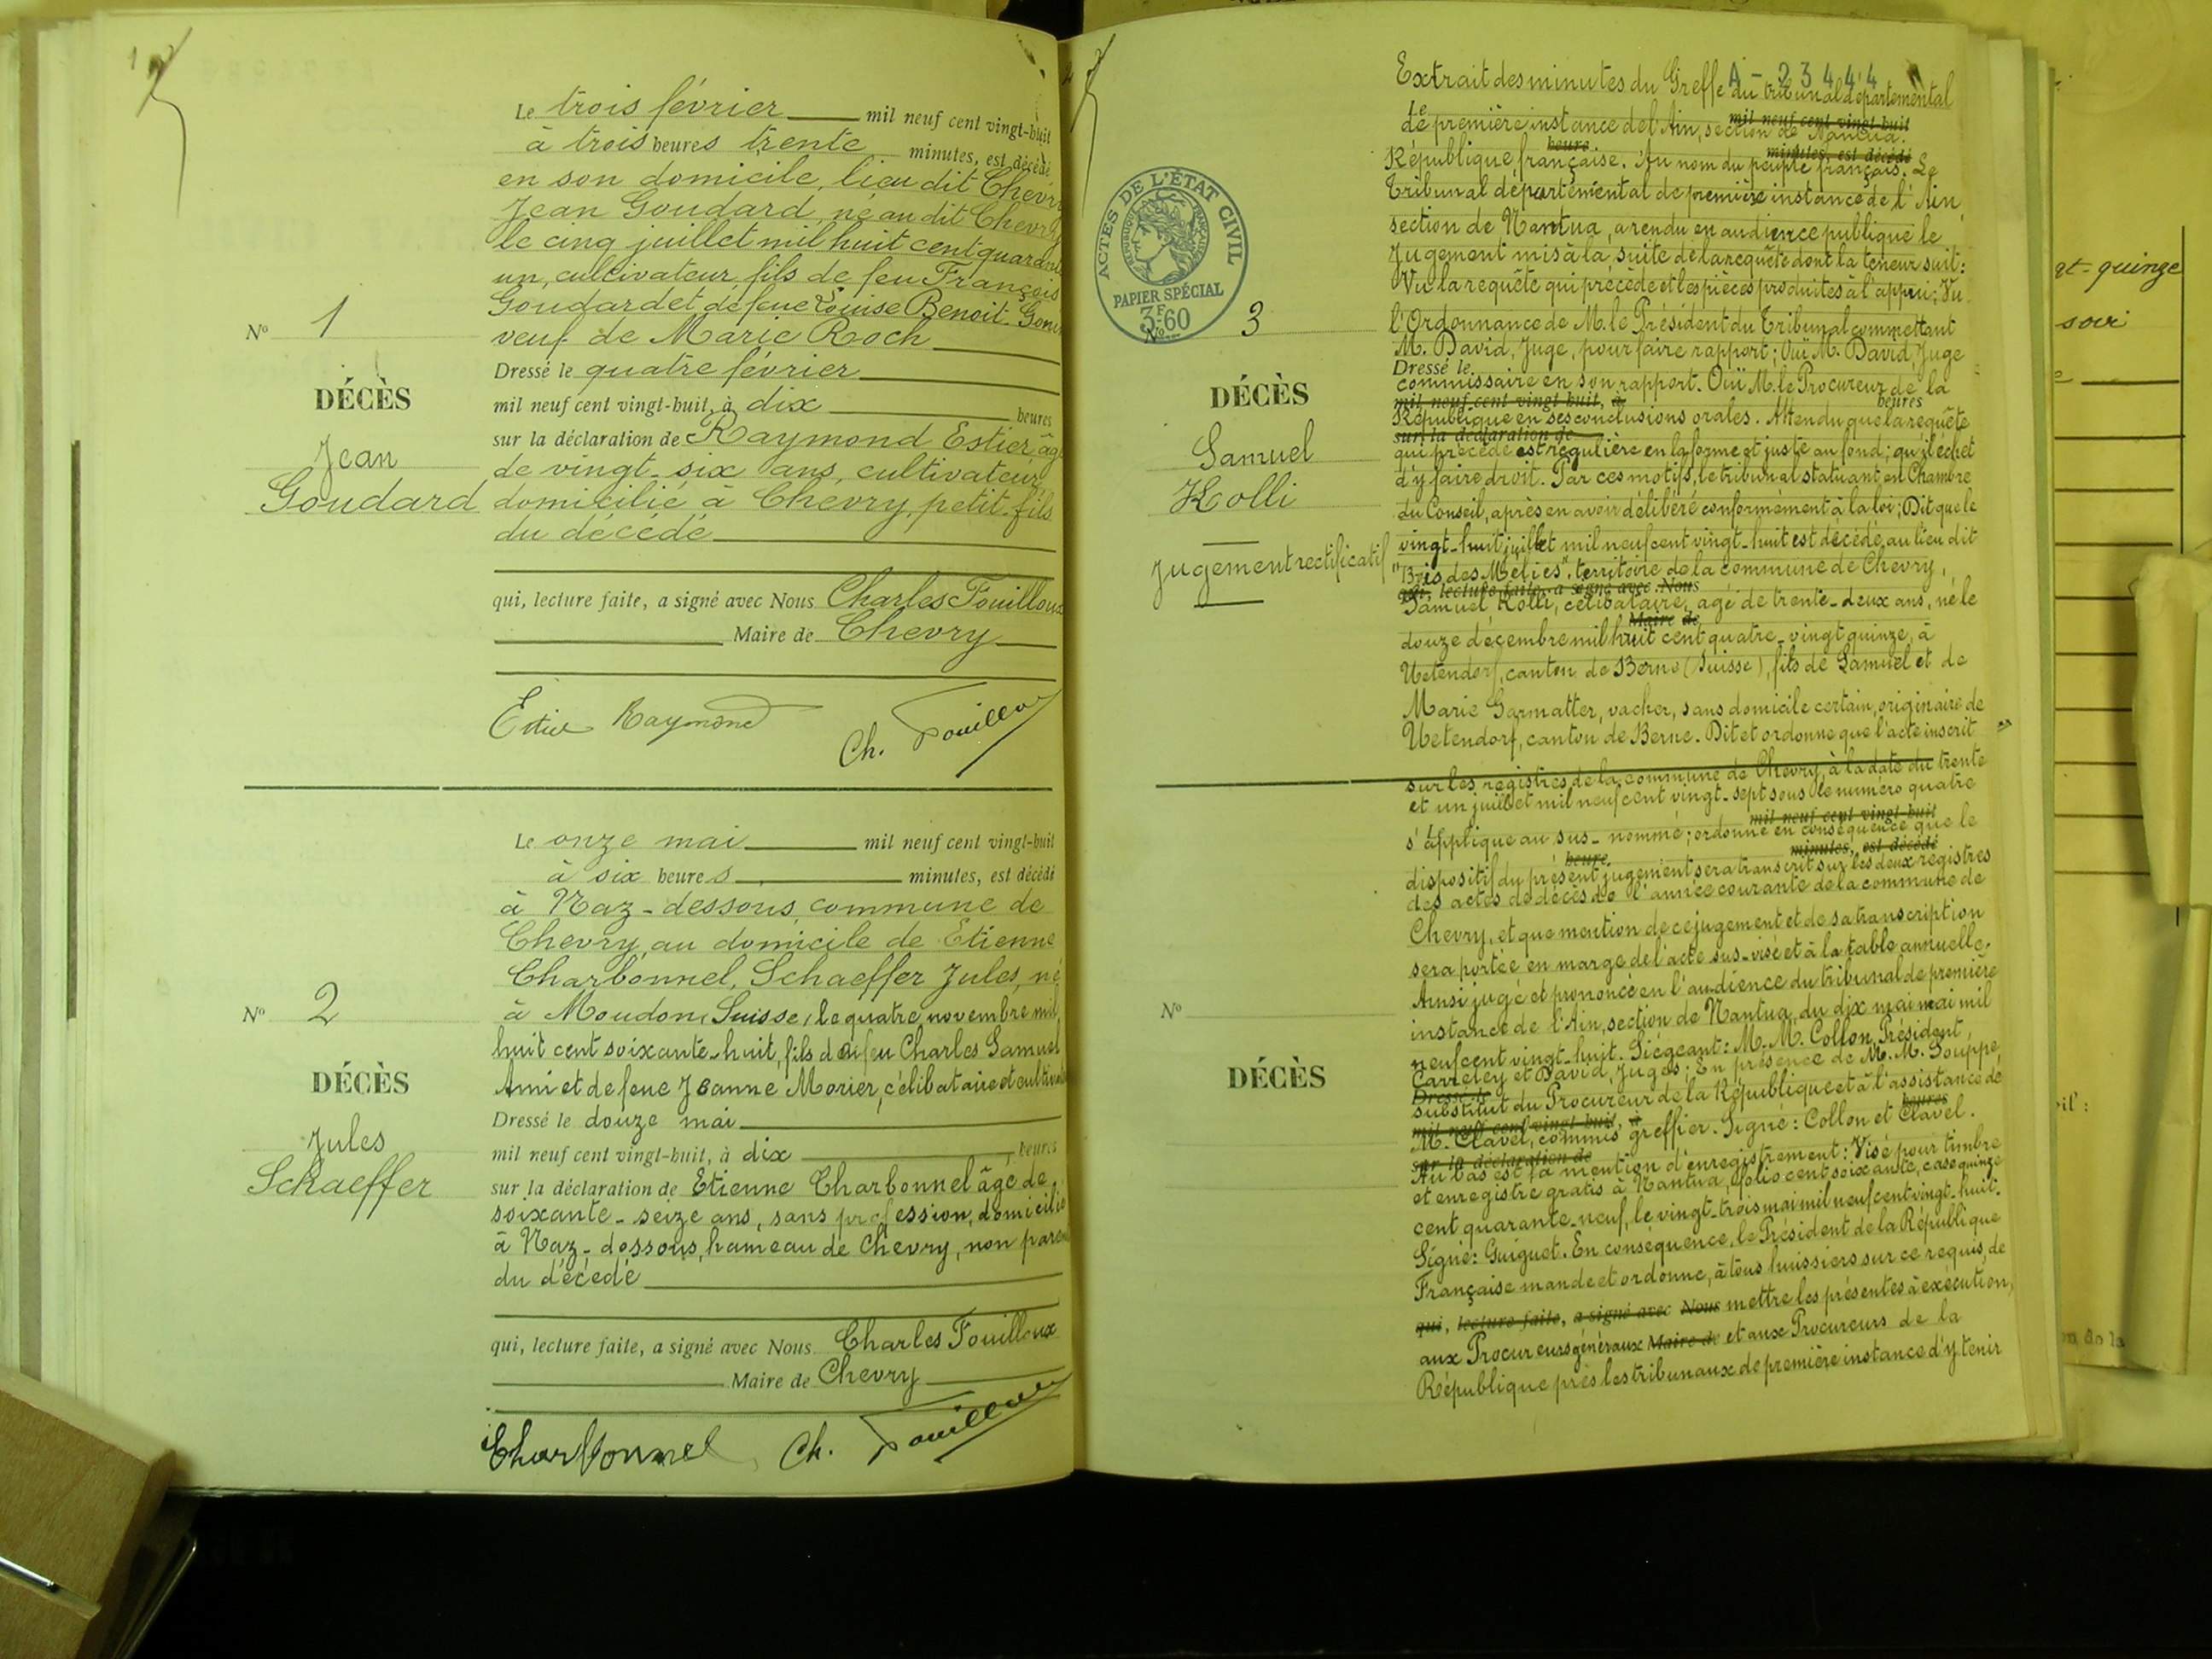 1
Le trois février mil neuf cent vingt-huit
à trois heures trente minutes, est décédé
en son domicile, lieu dit Chevry
Jean Goudard, né au dit Chevry
le cinq juillet mil huit cent quarante
un, cultivateur, fils de feu François
Goudard et de feue Louise Benoit-Gonin
veuf de Marie Roch
Dressé le quatre février
mil neuf cent vingt-huit, à dix heures
sur la déclaration de Raymond Estier, âgé
de vingt-six ans, cultivateur
domicilié à Chevry, petit-fils
du décédé
qui, lecture faite, a signé avec Nous Charles Fouilloux
Maire de Chevry
Estier Raymond
Ch. Fouilloux
No 1
DÉCÈS
Jean
Goudard
Le onze mai mil neuf cent vingt-huit
à six heures minutes, est décédé
à Naz-dessous, commune de
Chevry, au domicile de Etienne
Charbonnel, Schaeffer Jules, né
à Moudon, Suisse, le quatre novembre mil
huit cent soixante-huit, fils de feu Charles Samuel
Ami et de feue Jeanne Morier, célibataire et cultivateur
Dressé le douze mai
mil neuf cent vingt-huit, à dix heures
sur la déclaration de Etienne Charbonnel âgé de
soixante-seize ans, sans profession, domicilié
à Naz-dessous, hameau de Chevry, non parent
du décédé
qui, lecture faite, a signé avec Nous Charles Fouilloux
Maire de Chevry
Charbonnel Ch. Fouilloux
No 2
DÉCÈS
Jules
Schaeffer
A-23444
ACTES DE L'ÉTAT CIVIL
RÉPUBLIQUE FRANÇAISE
PAPIER SPÉCIAL
3F60
No 3
DÉCÈS
Samuel
Kolli
Jugement rectificatif
Extrait des minutes du Greffe du tribunal départemental
Le mil neuf cent vingt-huit
de première instance de l'Ain, section de Nantua.
heure minutes, est décédé
République française. Au nom du peuple français. Le
Tribunal départemental de première instance de l'Ain,
section de Nantua, a rendu en audience publique le
Jugement mis à la suite de la requête dont la teneur suit:
Vu la requête qui précède et les pièces produites à l'appui; Vu
l'Ordonnance de M. le Président du Tribunal commettant
M. David, Juge, pour faire rapport; Ouï M. David, Juge
Dressé le
commissaire en son rapport. Ouï M. le Procureur de la
mil neuf cent vingt-huit, à heures
République en ses conclusions orales. Attendu que la requête
sur la déclaration de
qui précède est régulière en la forme et juste au fond; qu'il échet
d'y faire droit. Par ces motifs, le tribunal statuant en Chambre
du Conseil, après en avoir délibéré conformément à la loi; Dit que le
vingt-huit juillet mil neuf cent vingt-huit est décédé, au lieu dit
"Bois des Mélies", territoire de la commune de Chevry,
qui, lecture faite, a signé avec Nous
Samuel Kolli, célibataire, âgé de trente-deux ans, né le
Maire de
douze décembre mil huit cent quatre-vingt quinze, à
Uetendorf, canton de Berne (Suisse), fils de Samuel et de
Marie Garmatter, vacher, sans domicile certain, originaire de
Uetendorf, canton de Berne. Dit et ordonne que l'acte inscrit
sur les registres de la commune de Chevry, à la date du trente
et un juillet mil neuf cent vingt-sept sous le numéro quatre
Le mil neuf cent vingt-huit
s'applique au sus-nommé; ordonne en conséquence que le
heure minutes, est décédé
dispositif du présent jugement sera transcrit sur les deux registres
des actes de décès de l'année courante de la commune de
Chevry, et que mention de ce jugement et de sa transcription
sera portée en marge de l'acte sus-visé et à la table annuelle.
Ainsi jugé et prononcé en l'audience du tribunal de première
instance de l'Ain, section de Nantua, du dix mai mai mil
neuf cent vingt-huit. Siégeant: M. M. Collon, Président,
Carreley et David, Juges; En présence de M. M. Souppe,
Dressé le
substitut du Procureur de la République et à l'assistance de
mil neuf cent vingt-huit, à heures
M. Clavel, commis greffier. Signé: Collon et Clavel.
sur la déclaration de
Au bas est la mention d'enregistrement: Visé pour timbre
et enregistré gratis à Nantua, folio cent soixante, case quinze
cent quarante-neuf, le vingt-trois mai mil neuf cent vingt-huit.
Signé: Guiguet. En conséquence, le Président de la République
Française mande et ordonne, à tous huissiers sur ce requis, de
qui, lecture faite, a signé avec Nous mettre les présentes à exécution,
aux Procureurs généraux Maire de et aux Procureurs de la
République près les tribunaux de première instance d'y tenir
No
DÉCÈS
gt-quinze
soir